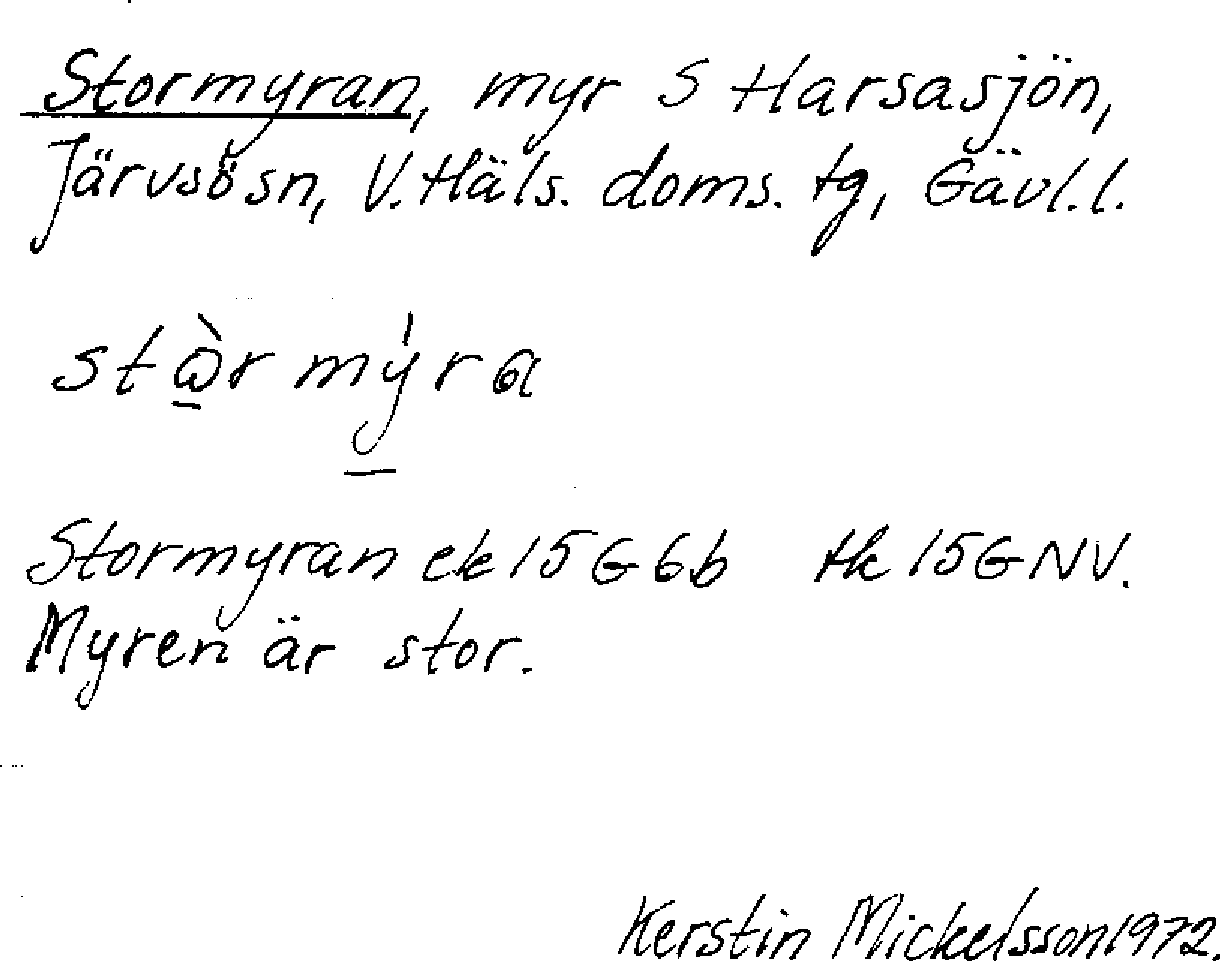 Stormyran, myr S Harsasjön,
Järvsö sn, V. Häls. doms. tg, Gävl. l.
stὼ̲r mý̲ra
Stormyran ek 15 G 6b tk 15 G NV.
Myren är stor.
Kerstin Mickelsson 1972.